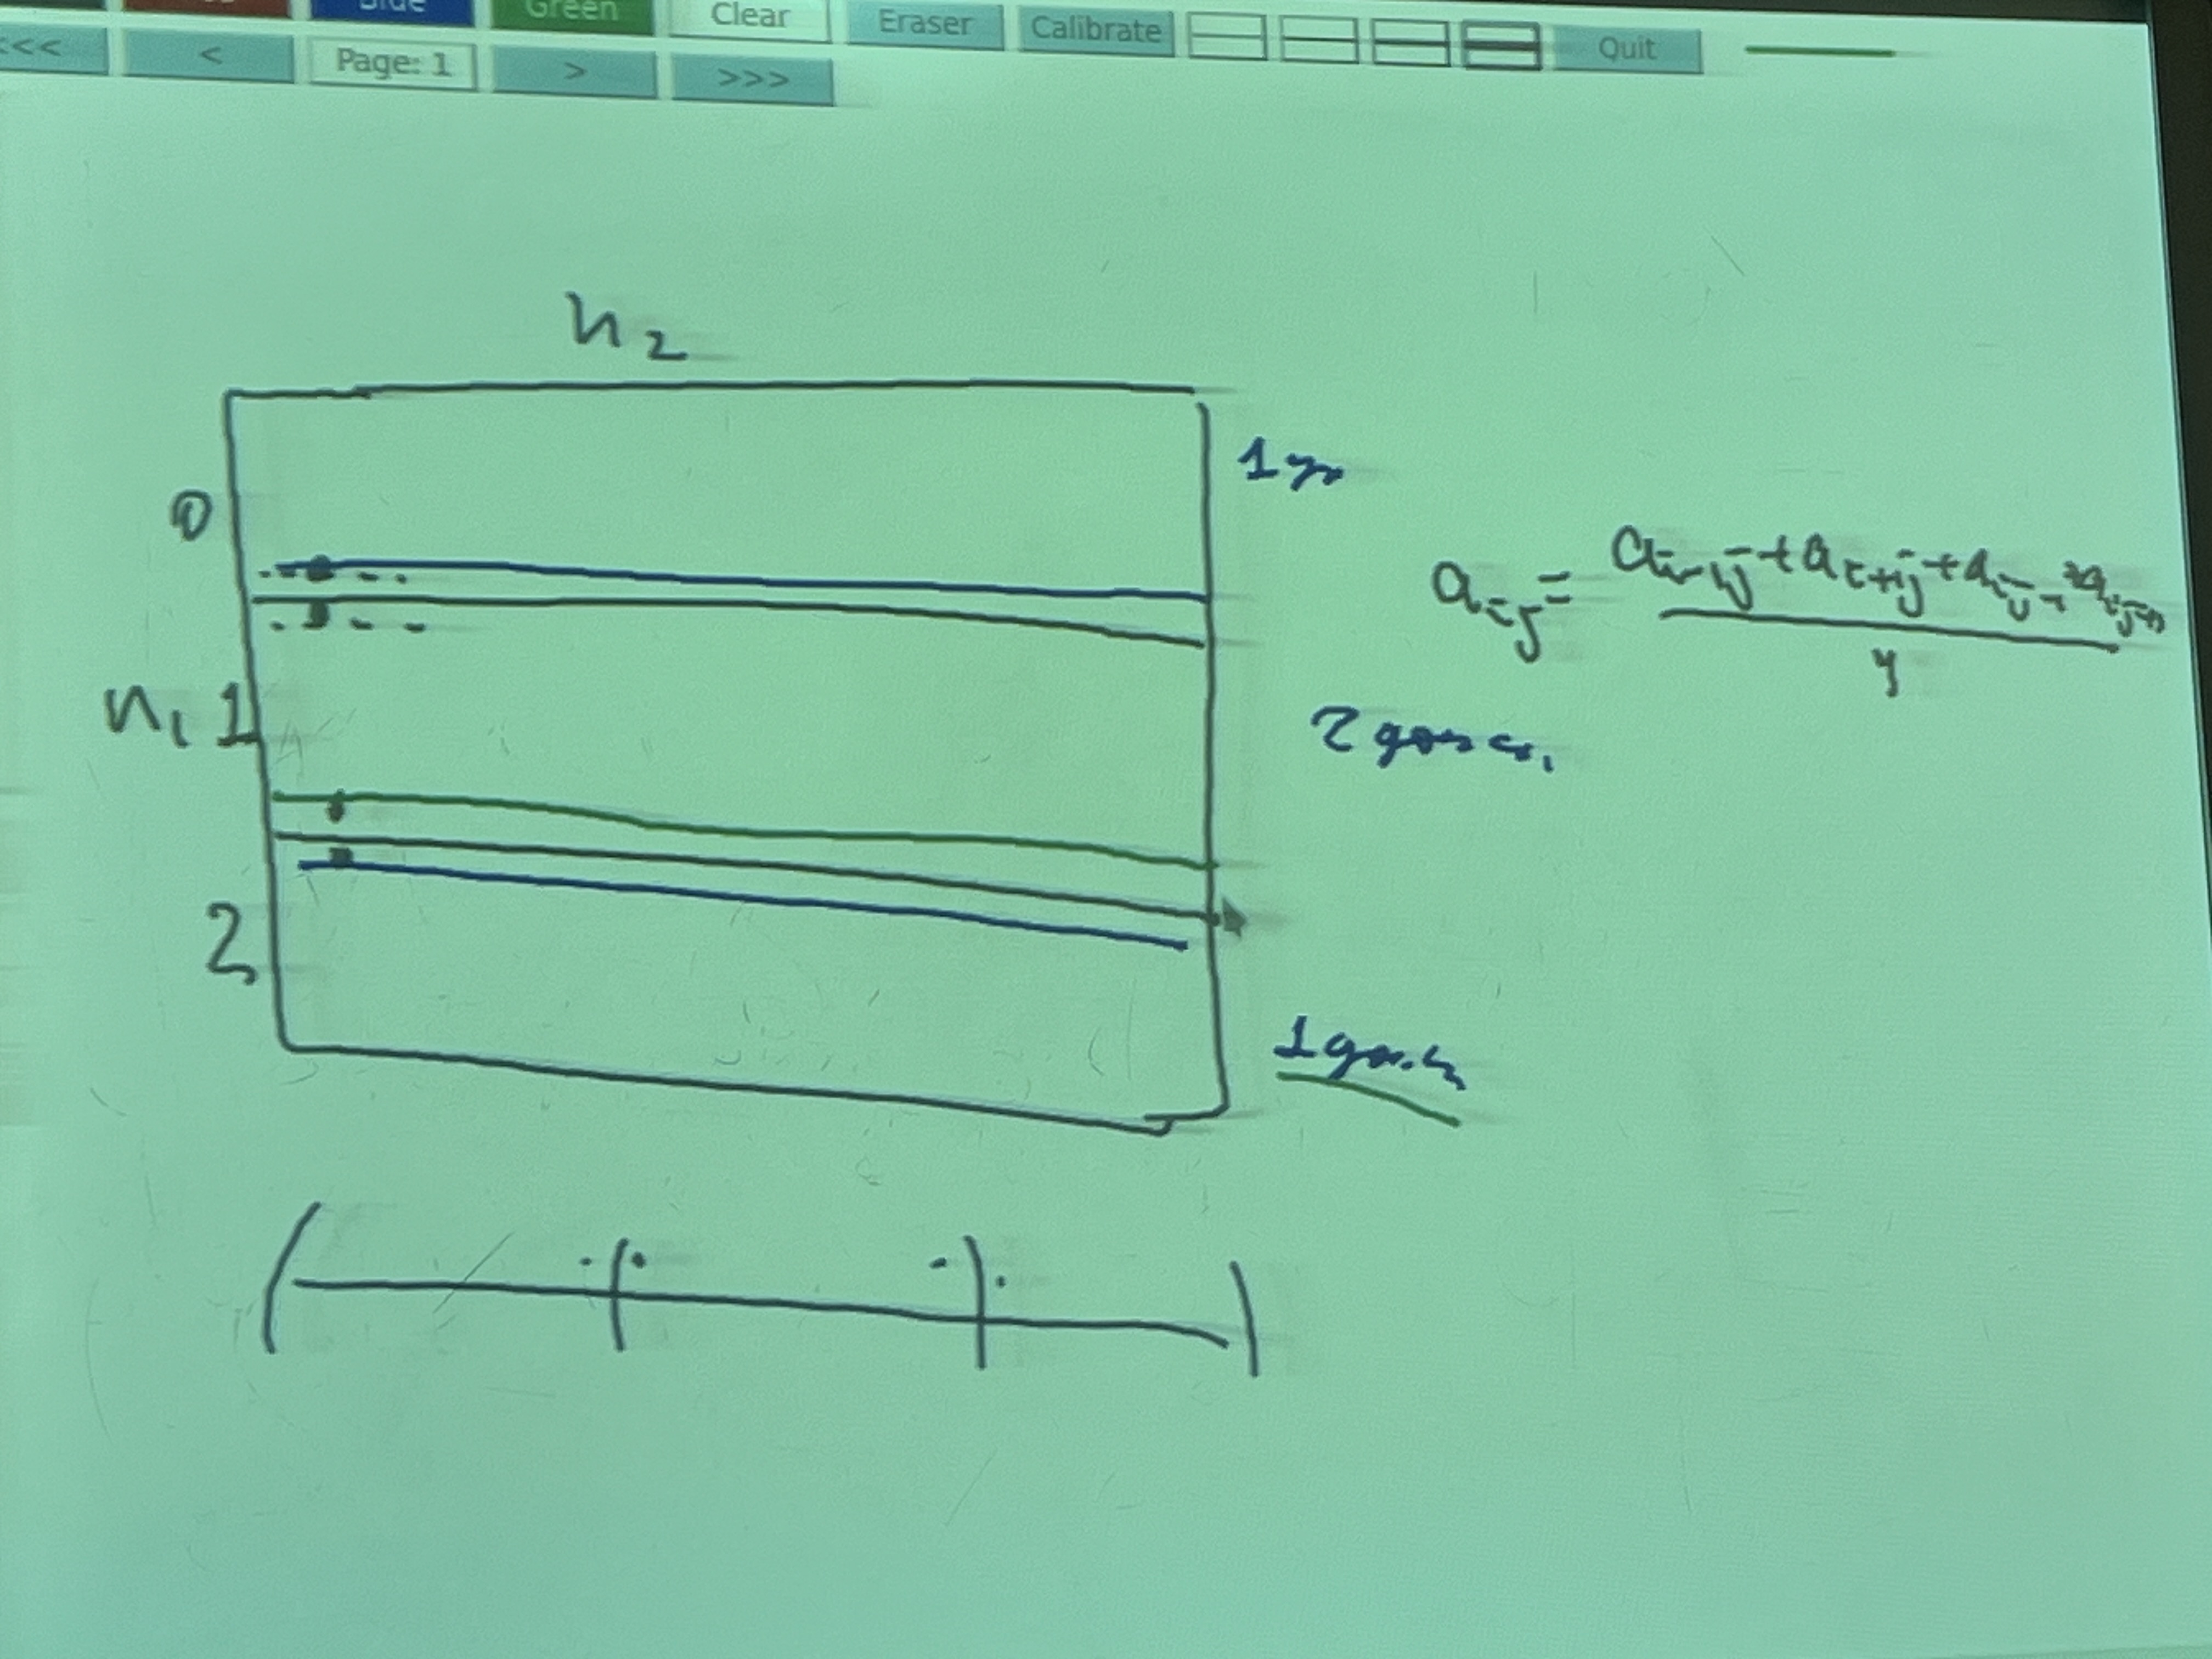 Blue Green Clear Eraser Calibrate Quit
<<< < Page: 1 > >>>
n2
0
1
a ij = a i-1j + a i+1j + a ij-1 + a ij+1
4
n1 1
2
2
1